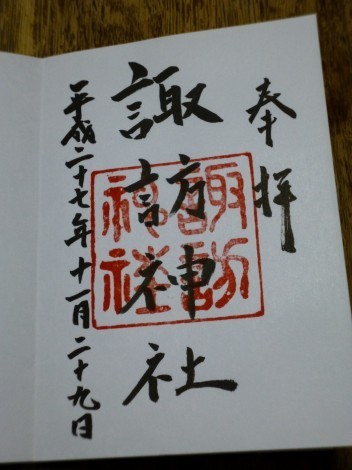 奉拝
諏訪神社
諏訪
神社
平成二十七年十一月二十九日